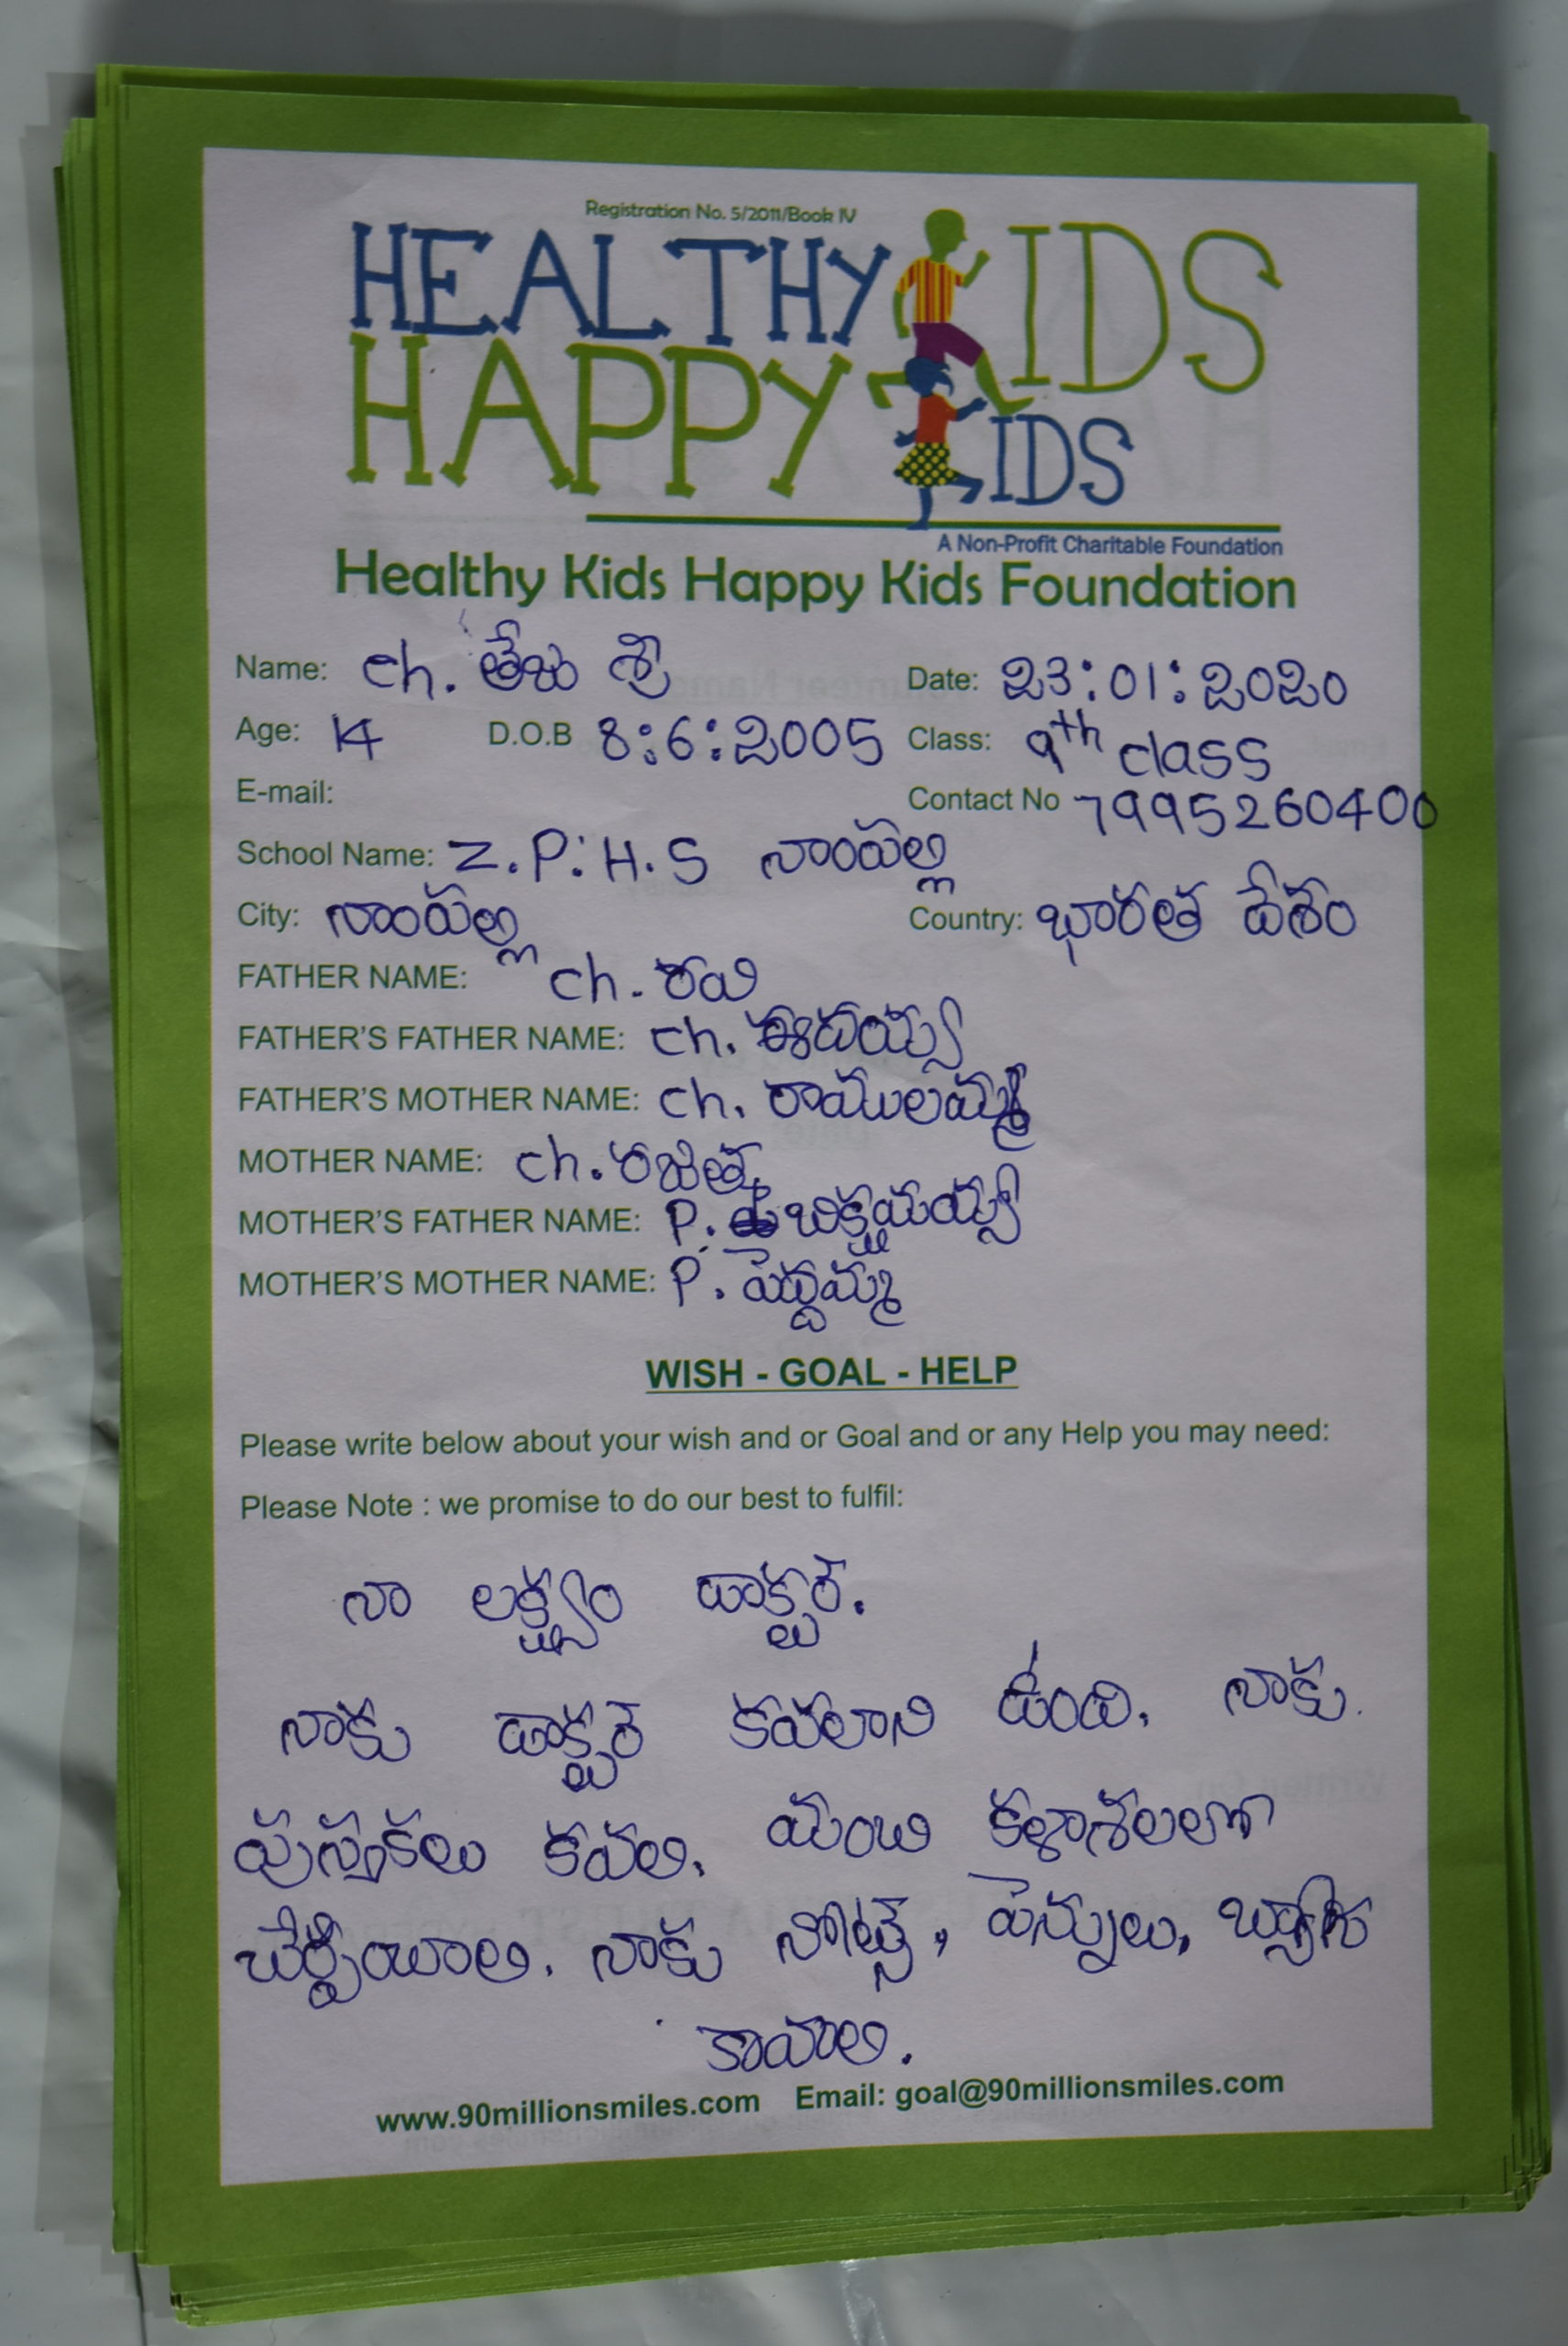 Registration No. 5/2011/Book IV
HEALTHY KIDS
HAPPY KIDS
A Non-Profit Charitable Foundation
Healthy Kids Happy Kids Foundation
Name: ch. తేజు శ్రీ Date: 23:01:2020
Age: 14 D.O.B 8:6:2005 Class: 9th class
E-mail: Contact No 7995260400
School Name: Z.P.H.S నాంపల్లి
City: నాంపల్లి Country: భారత దేశం
FATHER NAME: ch. రవి
FATHER'S FATHER NAME: ch.
FATHER'S MOTHER NAME: ch. రాములమ్మ
MOTHER NAME: ch. రజిత
MOTHER'S FATHER NAME: P. బిక్షమయ్య
MOTHER'S MOTHER NAME: P. పెద్దమ్మ
WISH - GOAL - HELP
Please write below about your wish and or Goal and or any Help you may need:
Please Note : we promise to do our best to fulfil:
నా లక్ష్యం డాక్టర్.
నాకు డాక్టర్ కవలాని ఉంది. నాకు
పుస్తకలు కవలి. మంచి కళాశలలో
చేర్పియాలి. నాకు నోట్స్, పెన్నులు, బ్యాగ్
కావాలి.
www.90millionsmiles.com Email: goal@90millionsmiles.com